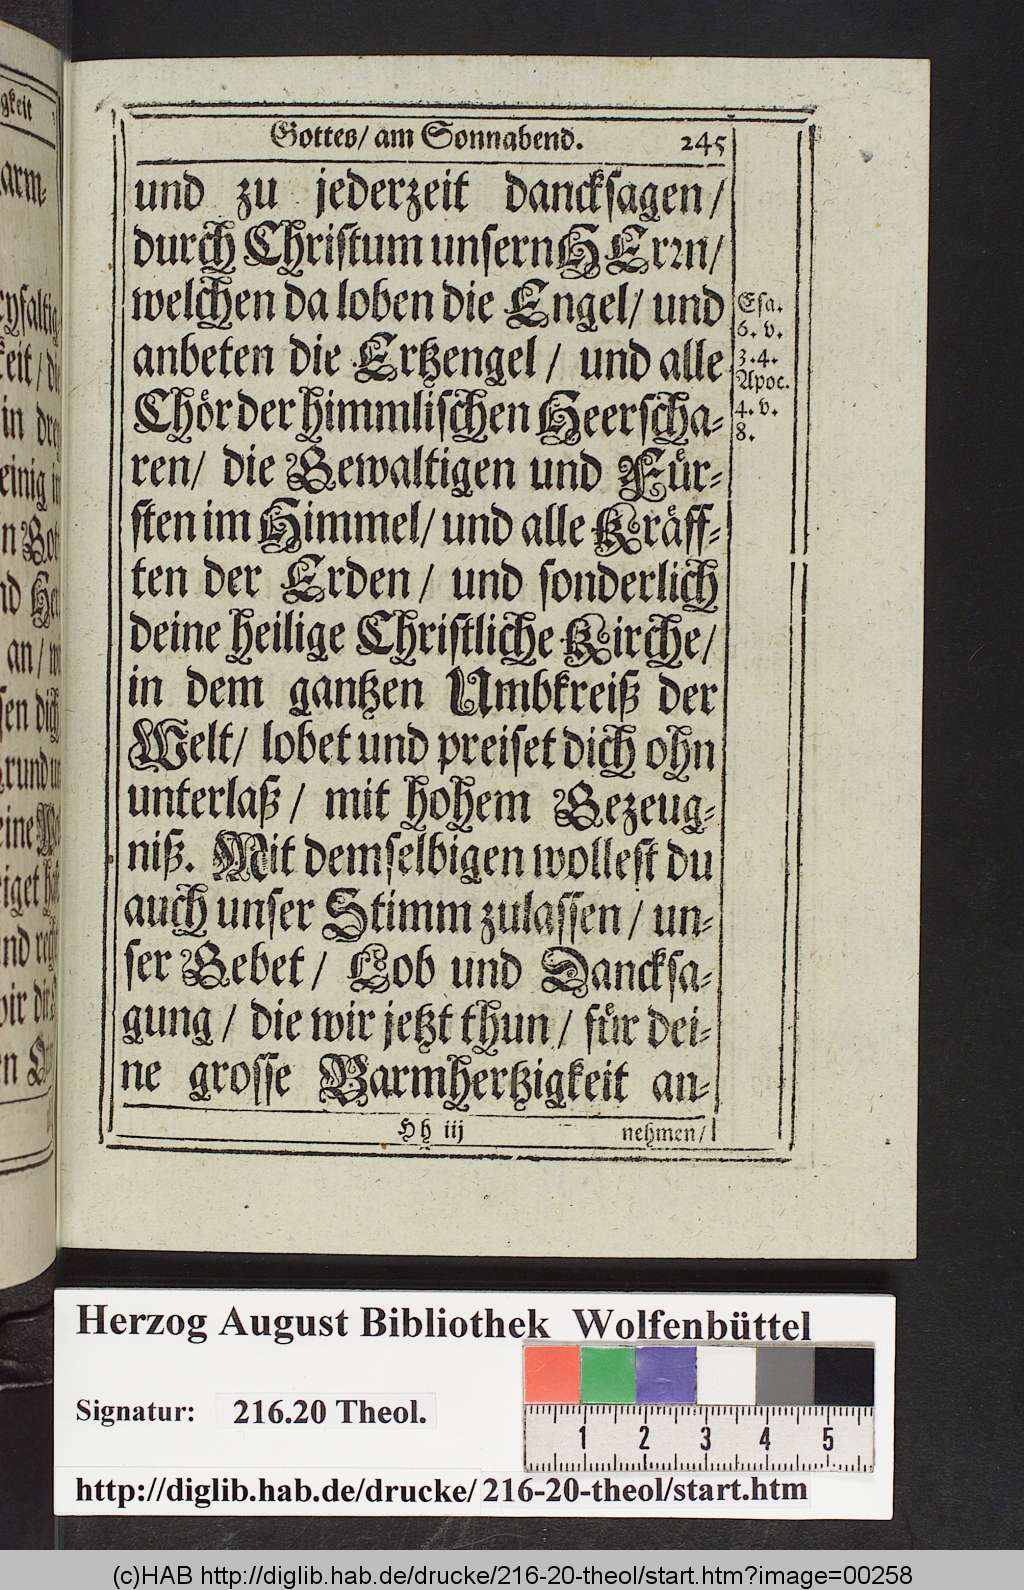 Gottes/ am Sonnabend. 245
und zu jederzeit dancksagen/
durch Christum unsern HErrn/
welchen da loben die Engel/ und
anbeten die Ertzengel/ und alle
Chör der himmlischen Heerscha-
ren/ die Gewaltigen und Für-
sten im Himmel/ und alle Kräff-
ten der Erden/ und sonderlich
deine heilige Christliche Kirche/
in dem gantzen Umbkreiß der
Welt/ lobet und preiset dich ohn
unterlaß/ mit hohem Gezeug-
niß. Mit demselbigen wollest du
auch unser Stimm zulassen/ un-
ser Gebet/ Lob und Dancksa-
gung/ die wir jetzt thun/ für dei-
ne grosse Barmhertzigkeit an-
Hh iij nehmen/
Esa.
6. v.
3.4.
Apoc.
4. v.
8.
Herzog August Bibliothek Wolfenbüttel
Signatur: 216.20 Theol.
1 2 3 4 5
http://diglib.hab.de/drucke/216-20-theol/start.htm
(c)HAB http://diglib.hab.de/drucke/216-20-theol/start.htm?image=00258